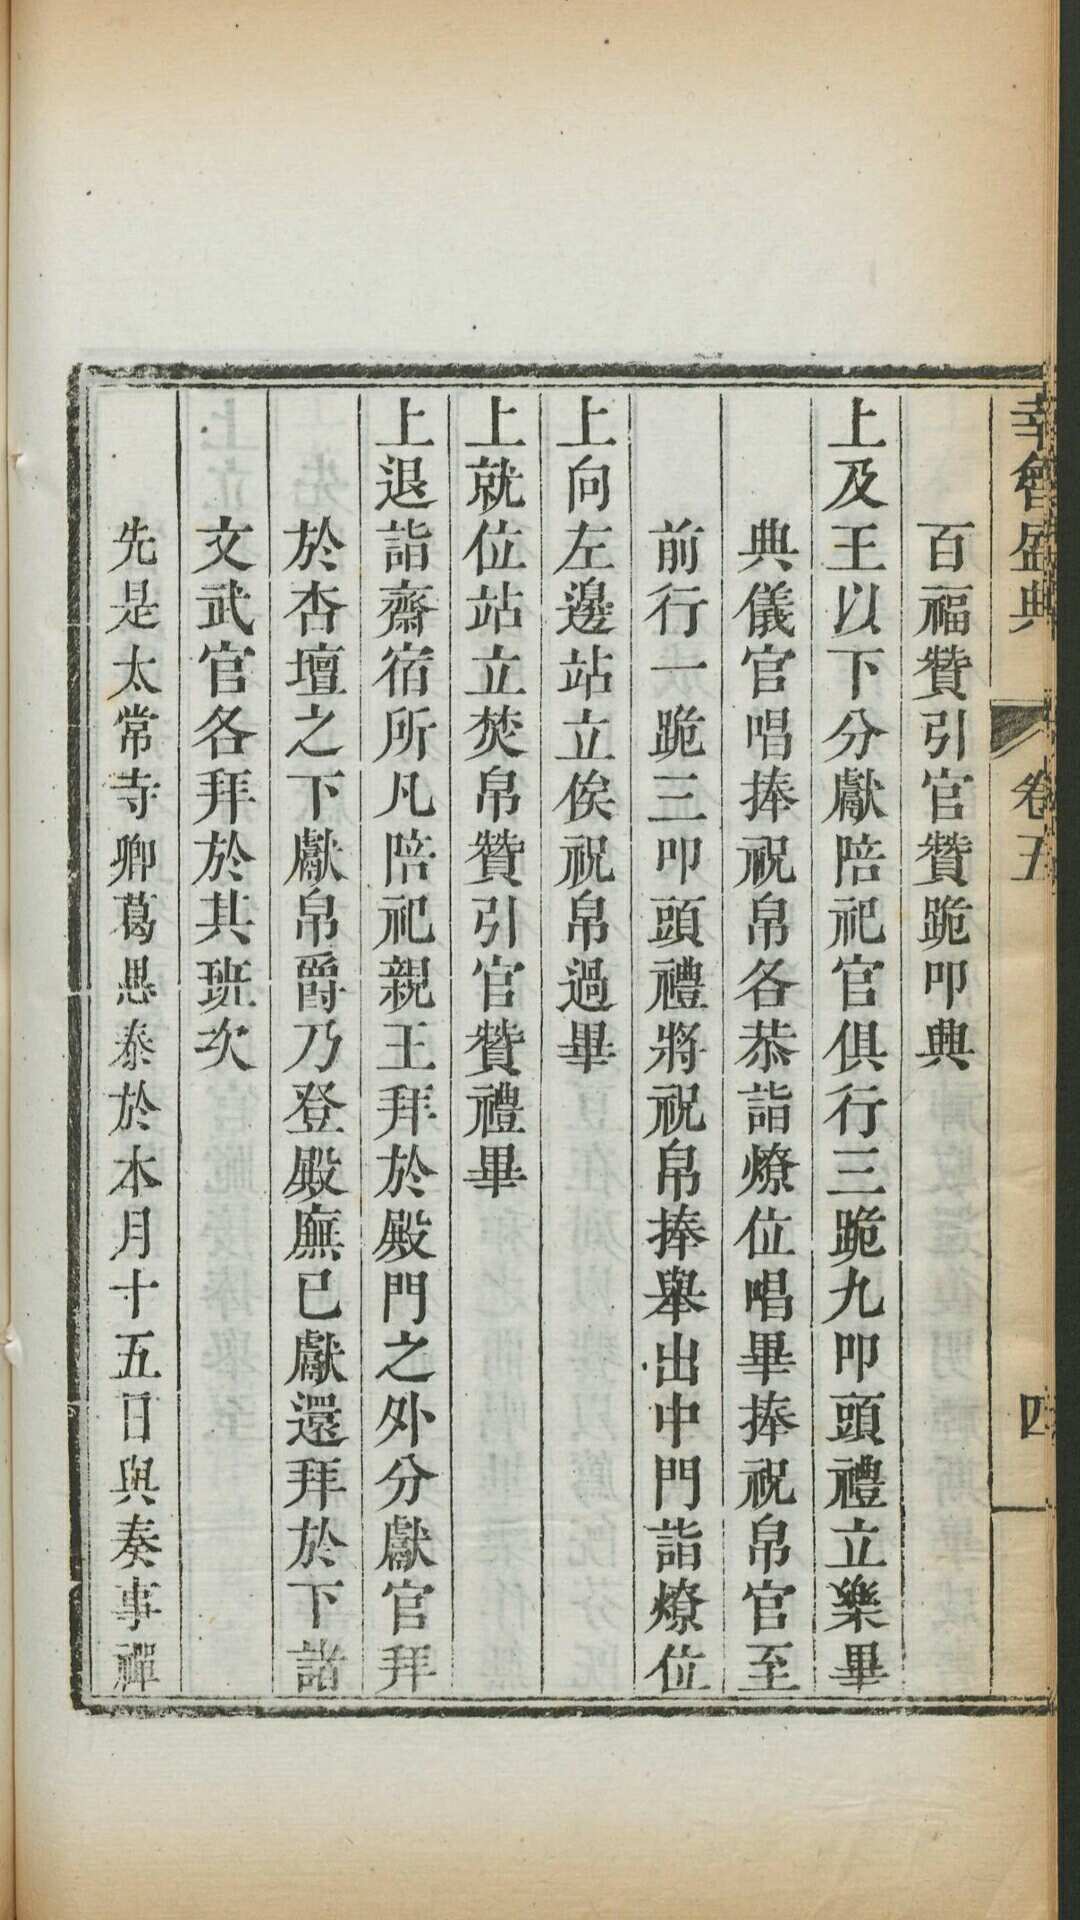 幸魯盛典
卷五
四
百福贊引官贊跪叩典
上及王以下分獻陪祀官俱行三跪九叩頭禮立樂畢
典儀官唱捧祝帛各恭詣燎位唱畢捧祝帛官至
前行一跪三叩頭禮將祝帛捧舉出中門詣燎位
上向左邊站立俟祝帛過畢
上就位站立焚帛贊引官贊禮畢
上退詣齋宿所凡陪祀親王拜於殿門之外分獻官拜
於杏壇之下獻帛爵乃登殿廡已獻還拜於下諸
文武官各拜於其班次
先是太常寺卿葛思泰於本月十五日與奏事禪